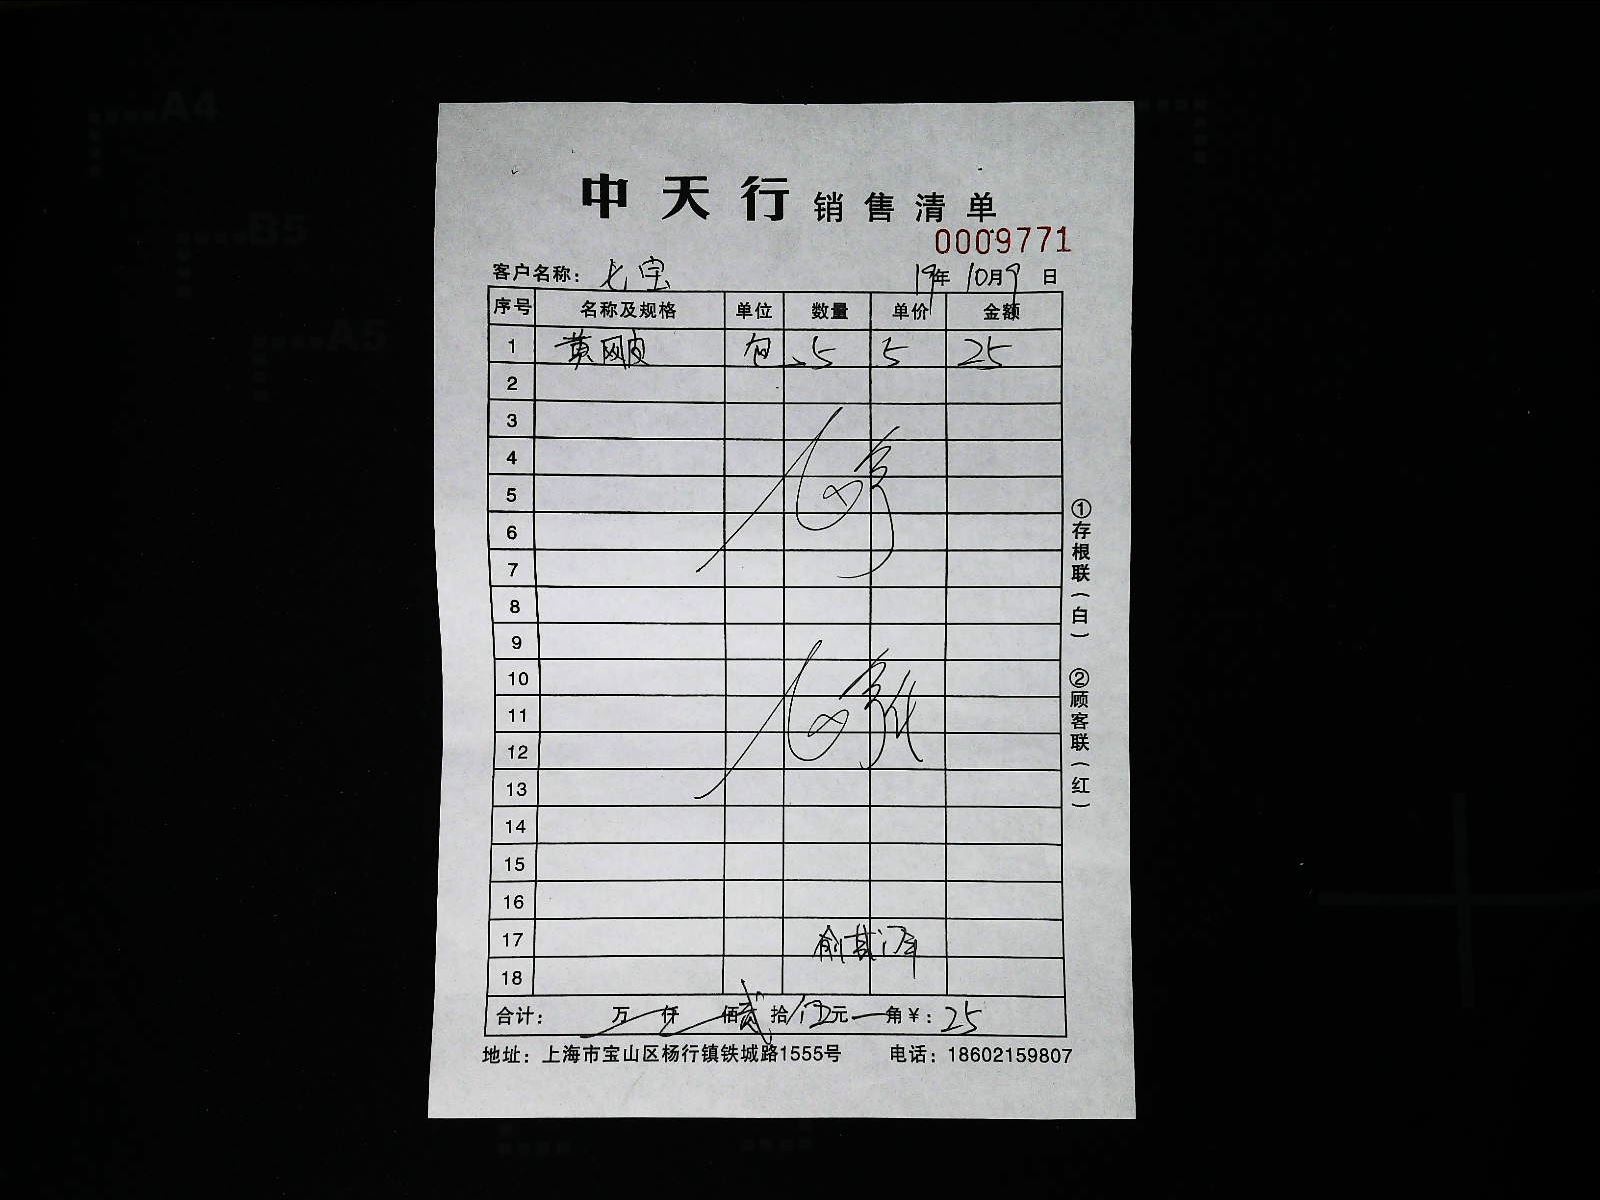 A4
B5
A5
中天行 销售清单
0009771
客户名称: 七宝 19年 10月9日
序号 名称及规格 单位 数量 单价 金额
1 黄网皮 包 5 5 25
2
3
4
5
6
7
8
9
10
11
12
13
14
15
16
17
18
合计: 万 仟 佰 贰 拾 伍 元 角 ¥: 25
地址: 上海市宝山区杨行镇铁城路1555号 电话: 18602159807
①存根联(白) ②顾客联(红)